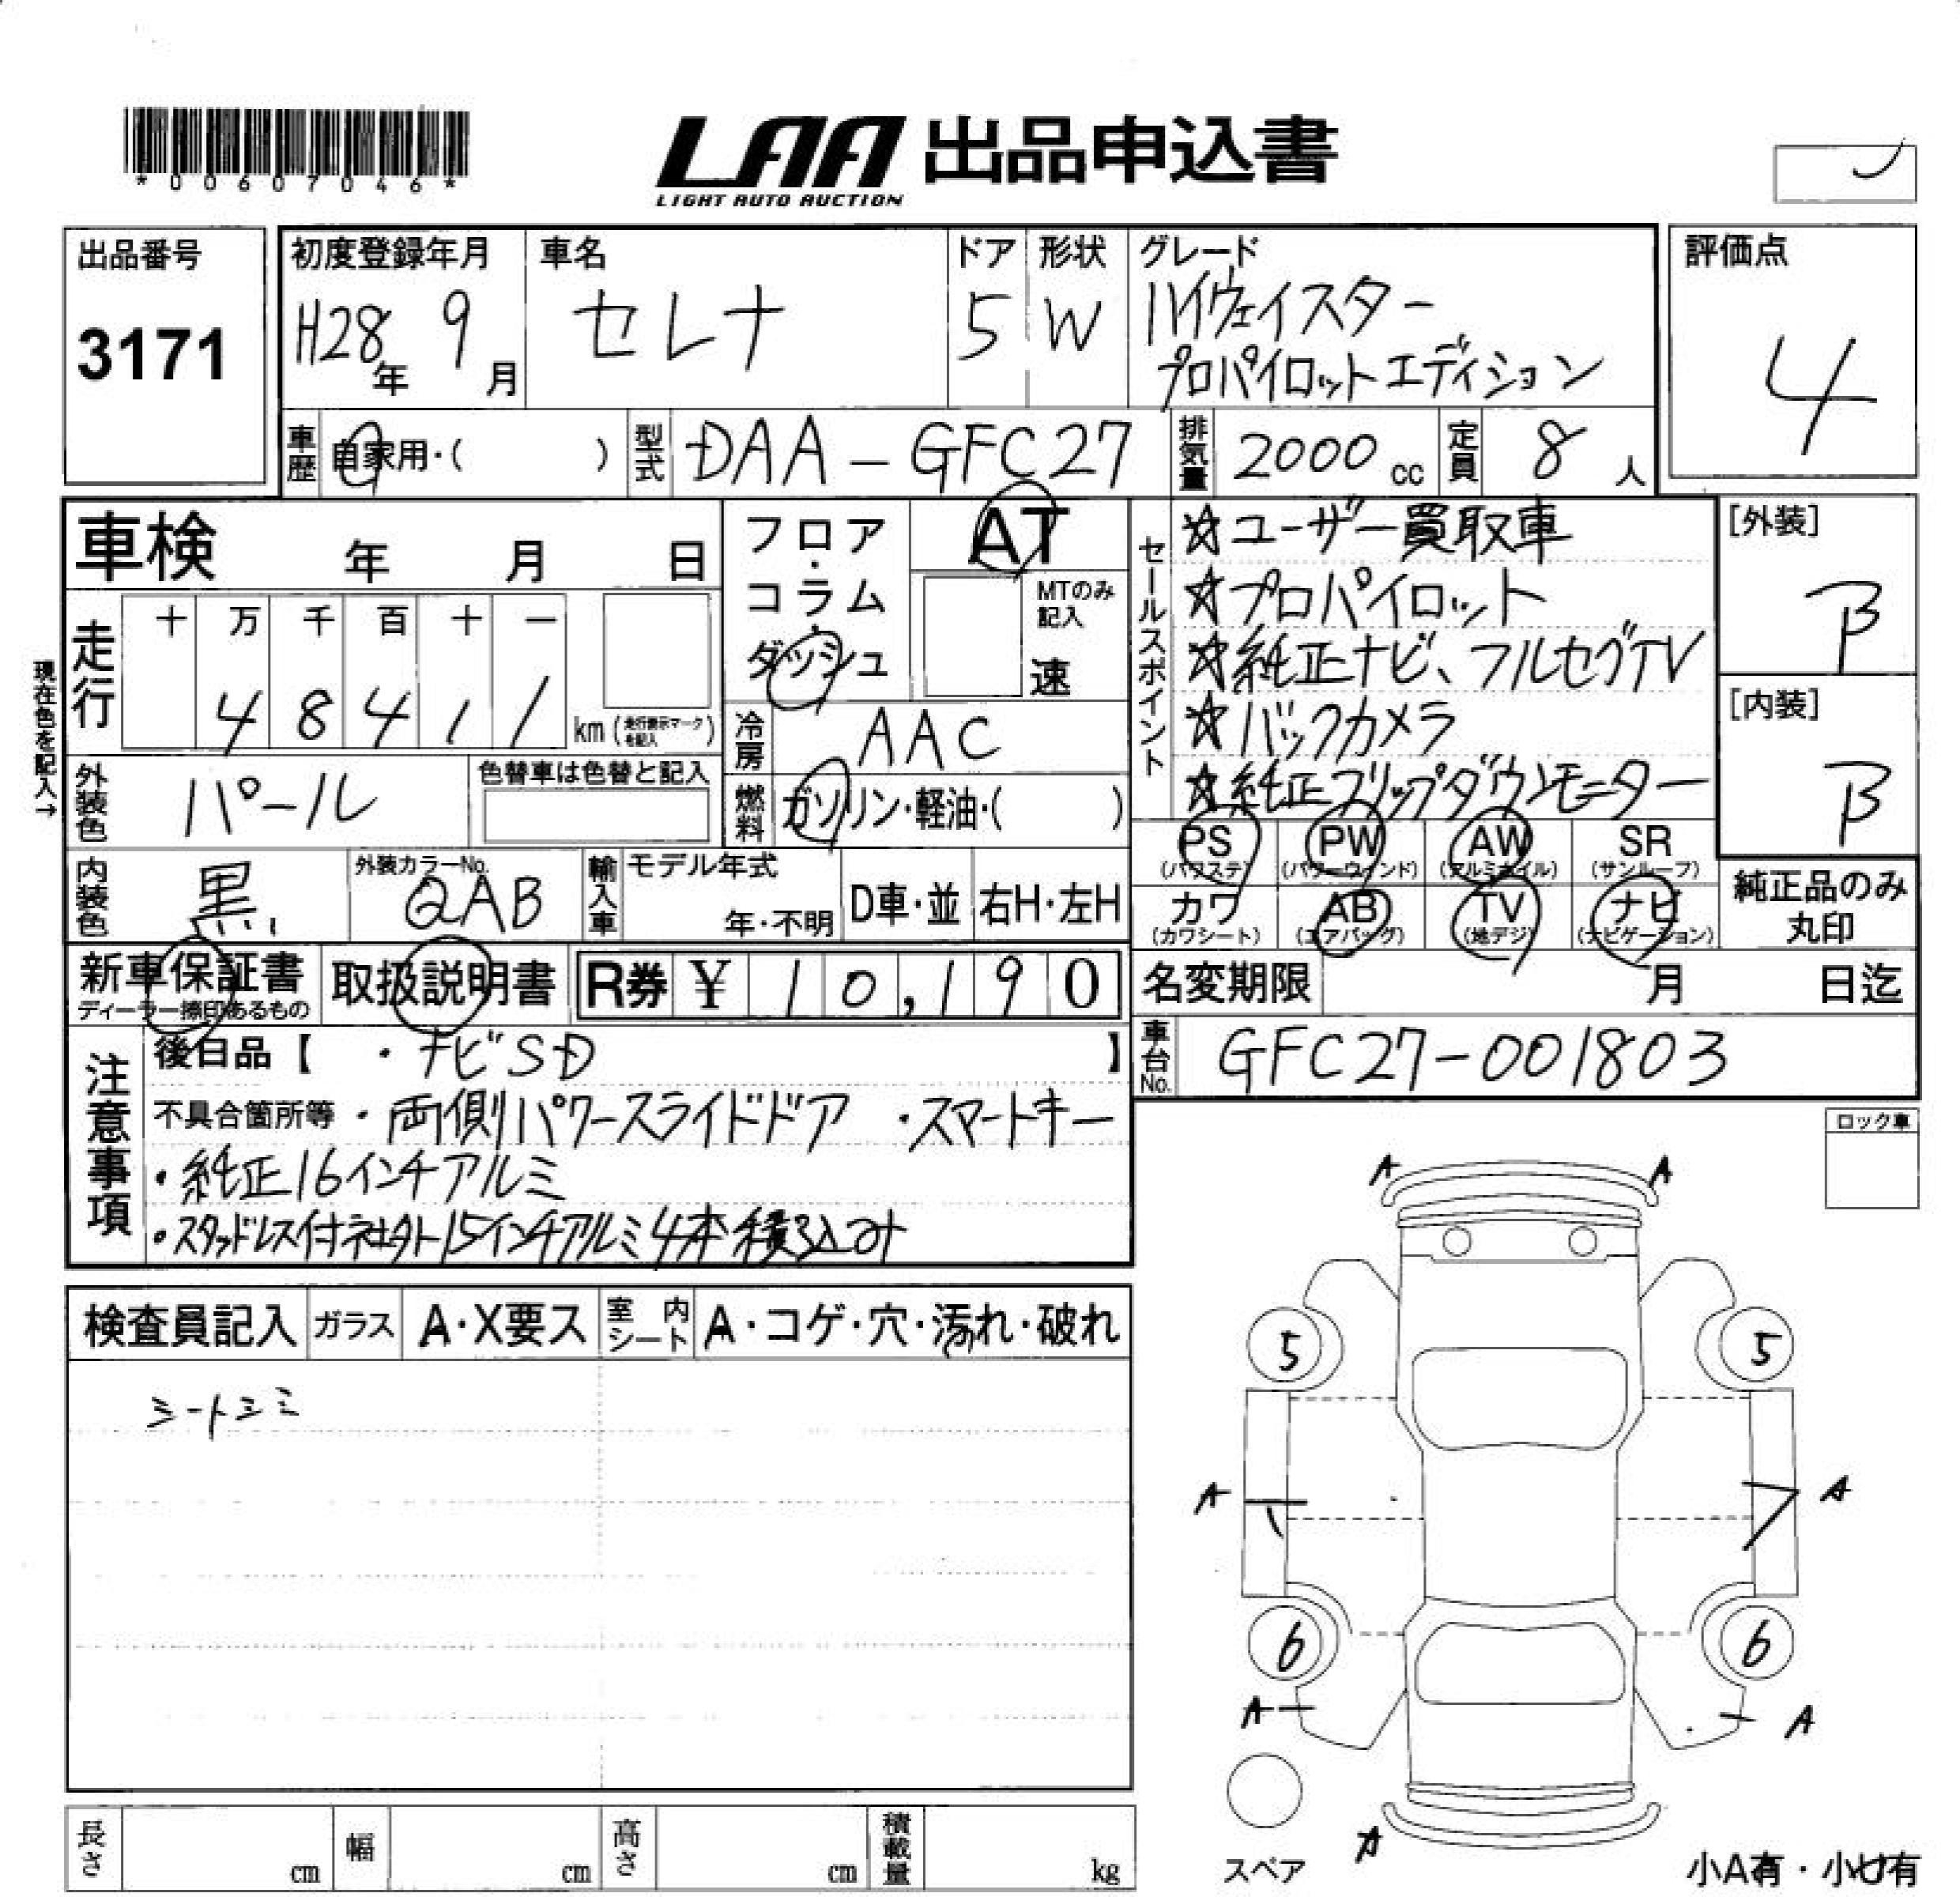 *00607046*
LAA 出品申込書
LIGHT AUTO AUCTION
出品番号
3171
初度登録年月
H28年 9月
車名
セレナ
ドア
5
形状
W
グレード
ハイウェイスター
プロパイロットエディション
評価点
4
車歴
自家用・( )
型式
DAA-GFC27
排気量
2000 cc
定員
8 人
車検 年 月 日
フロア・コラム・ダッシュ
AT
MTのみ記入
速
セールスポイント
☆ユーザー買取車
☆プロパイロット
☆純正ナビ、フルセグTV
☆バックカメラ
☆純正フリップダウンモニター
[外装]
B
[内装]
B
現在色を記入→
走行
十 万 千 百 十 一
4 8 4 1 1
km (走行表示マークを記入)
冷房
AAC
外装色
パール
色替車は色替と記入
燃料
ガソリン・軽油・( )
PS (パワステ)
PW (パワーウィンド)
AW (アルミホイル)
SR (サンルーフ)
カワ (カワシート)
AB (エアバッグ)
TV (地デジ)
ナビ (ナビゲーション)
純正品のみ丸印
内装色
黒
外装カラーNo.
QAB
輸入車
モデル年式
年・不明
D車・並
右H・左H
新車保証書
ディーラー捺印あるもの
取扱説明書
R券 ¥ 10,190
名変期限 月 日迄
注意事項
後日品【 ・ナビSD 】
車台No.
GFC27-001803
不具合箇所等 ・両側パワースライドドア ・スマートキー
・純正16インチアルミ
・スタッドレス付社外15インチアルミ4本積込み
ロック車
検査員記入
ガラス
A・X要ス
室内シート
A・コゲ・穴・汚れ・破れ
シートシミ
A A
5 5
A A
6 6
A A
A
スペア
小A有・小U有
長さ cm
幅 cm
高さ cm
積載量 kg